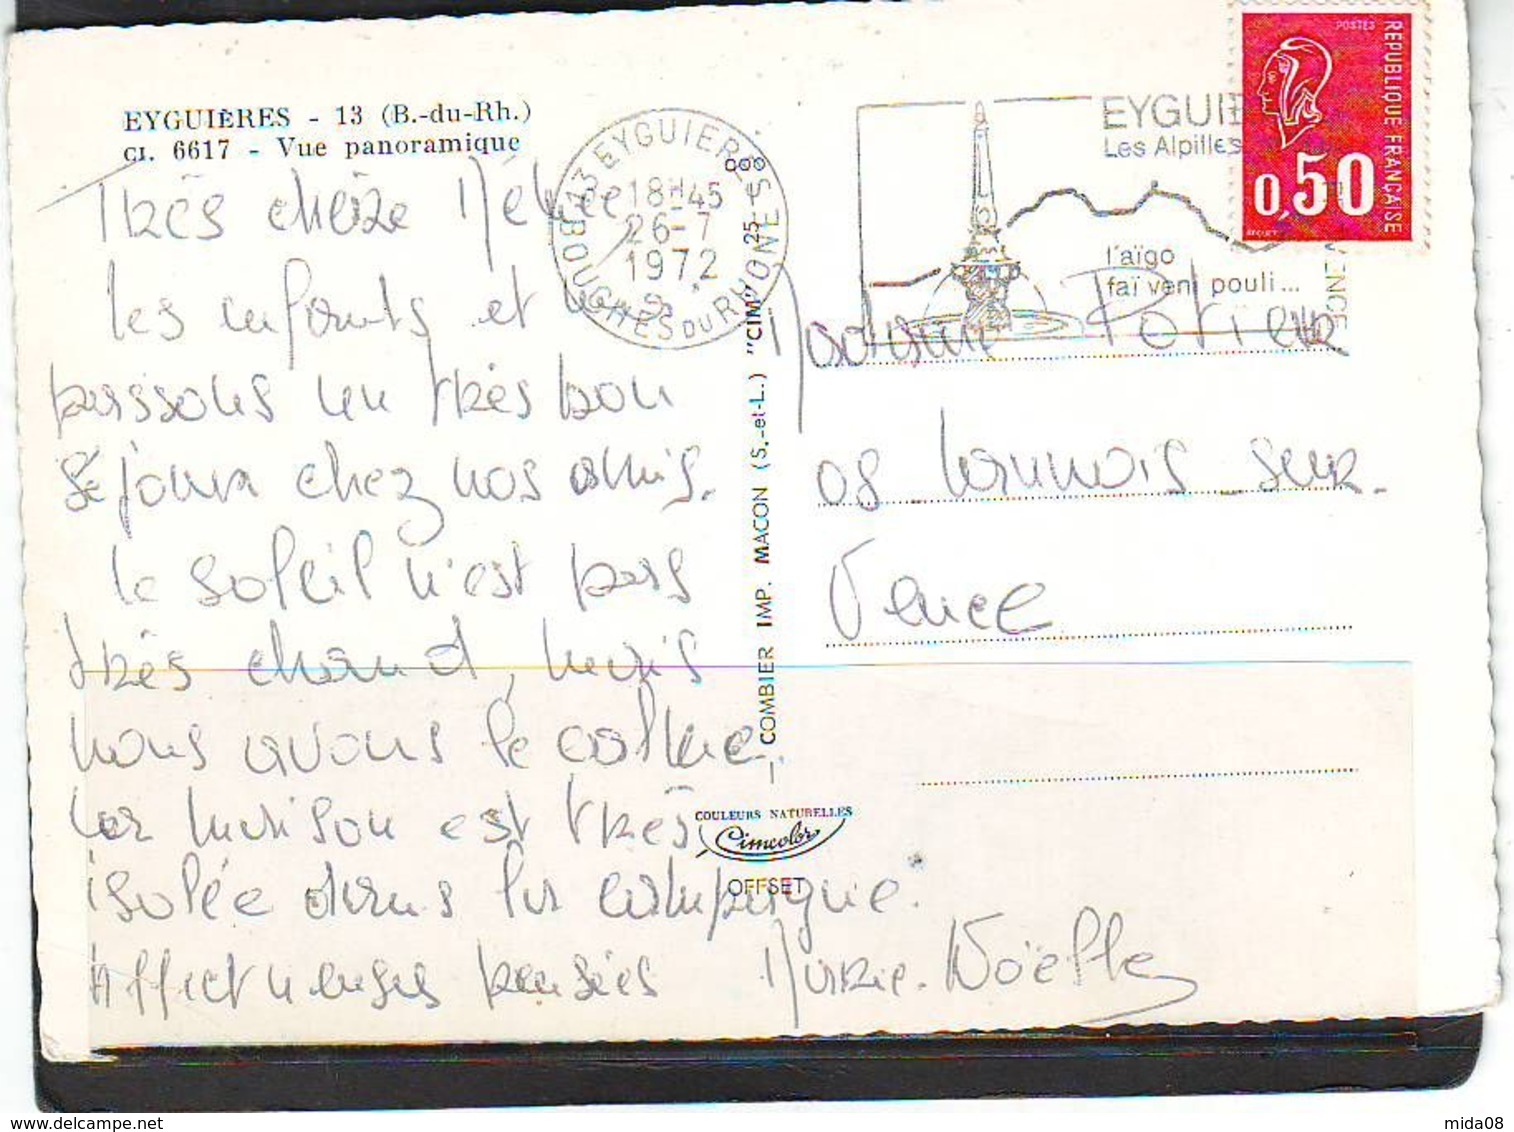 EYGUIÈRES - 13 (B.-du-Rh.)
CI. 6617 - Vue panoramique
Très chère Mémée
les enfants et
passons un très bon
séjour chez nos amis.
le soleil n'est pas
très chaud, mais
nous avons le calme,
la maison est très
isolée dans la campagne.
Affectueuses pensées Marie-Noëlle
13 EYGUIERES
BOUCHES DU RHONE
18H45
26-7
1972
— COMBIER IMP. MACON (S.-et-L.) "CIM"
COULEURS NATURELLES
Cimcolor
OFFSET
EYGUI
Les Alpilles
l'aïgo
faï veni pouli...
POSTES
REPUBLIQUE FRANÇAISE
0,50
Madame Potier
08 - Lonnois - sur -
Vence
www.delcampe.net
mida08